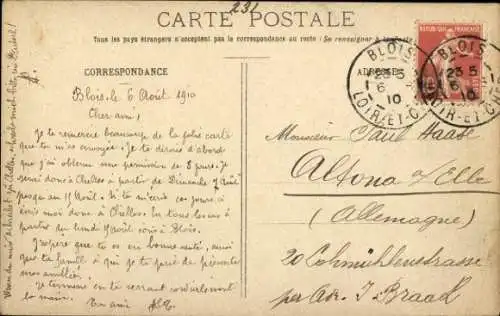 231
CARTE POSTALE
Tous les pays étrangers n'acceptent pas la correspondance au recto (Se renseigner à la
CORRESPONDANCE
ADRESSE
RÉPUBLIQUE FRANÇAISE
BLOIS
23 5
6
10
LOIR-ET-CHER
BLOIS
23 5
6
10
LOIR-ET-CHER
Blois, le 6 Août 1910
Cher ami,
Je te remercie beaucoup de la jolie carte
que tu m'as envoyée. Je te dirais d'abord
que j'ai obtenu une permission de 8 jours. Je
serai donc à Chelles à partir de Dimanche 7 Août
jusqu'au 15 Août. Si tu m'écris ces jours-ci
écris moi donc à Chelles. Tu
partir du lundi Août à Blois.
J'espère que tu es en bonne santé, ainsi
que ta famille à qui je te prie de présenter
mes amitiés.
Je termine en te serrant cordialement
la main.
Ton ami
Monsieur Paul Haase
Altona s/Elbe
(Allemagne)
20 Schmühlenstrasse
per Adr. J Braak